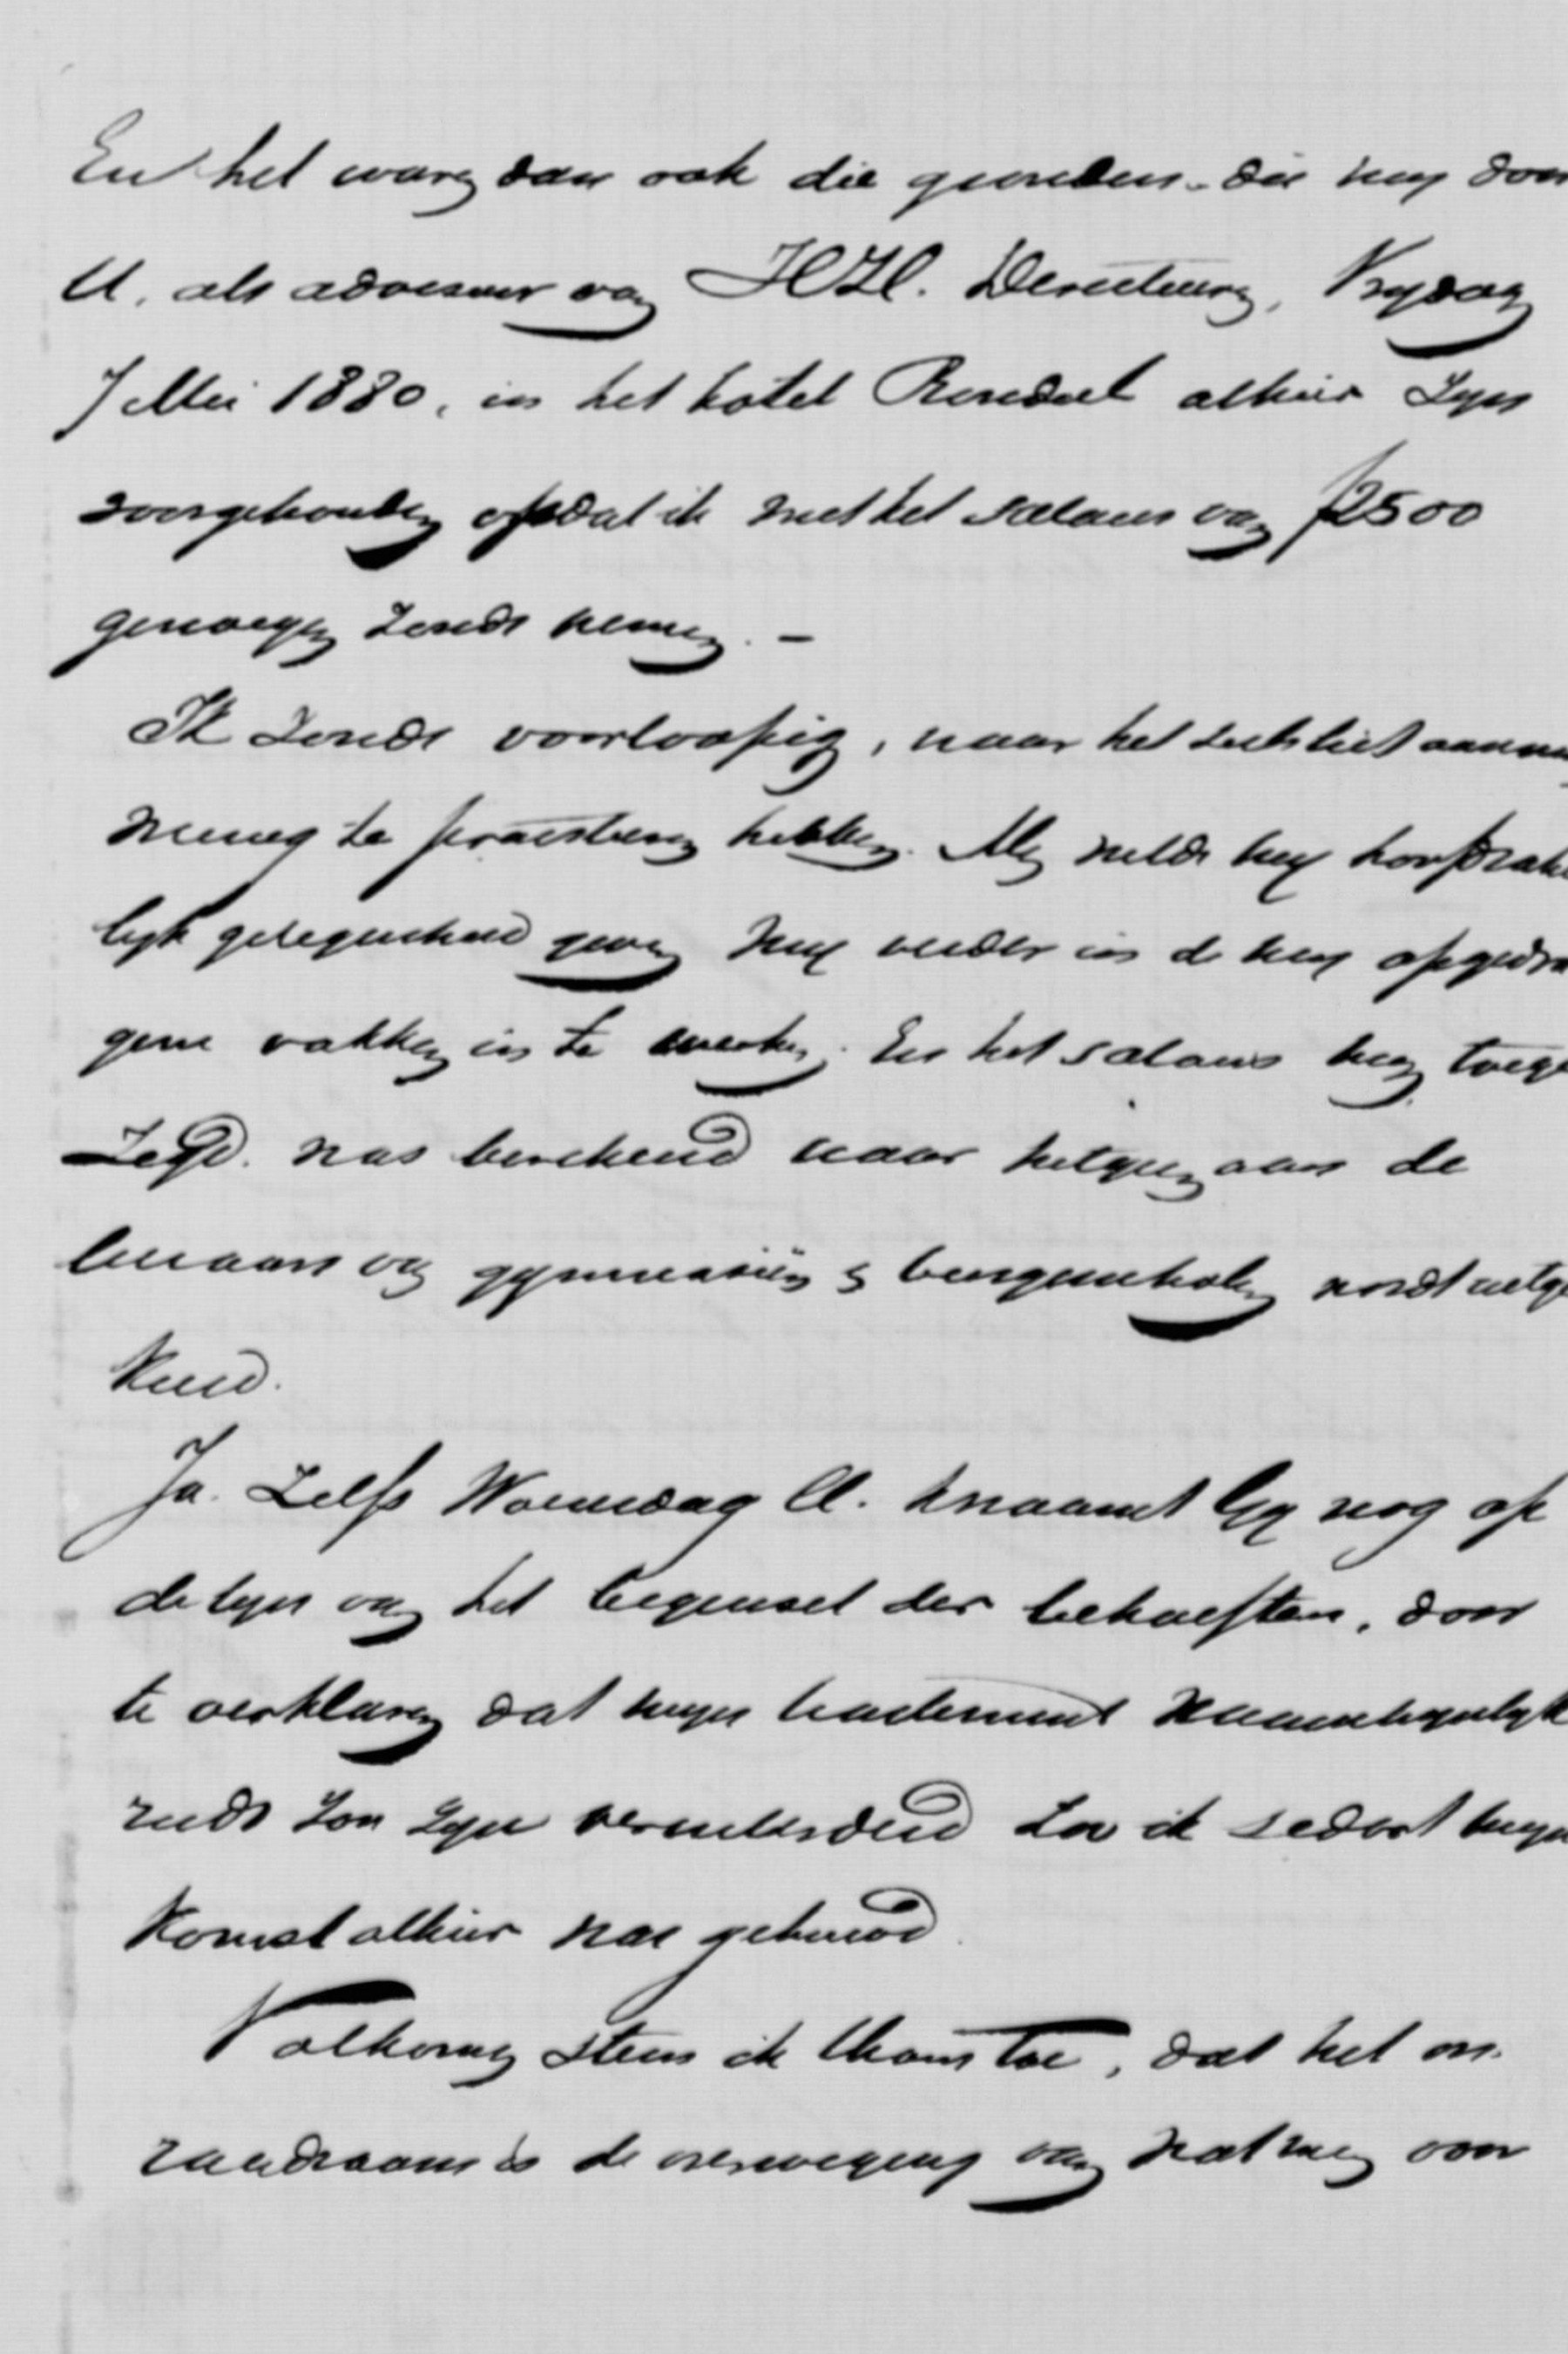 En het waren dan ook die gronden die my door
U, als adviseur van HH. Directeuren, Vrydag
7 Mei 1880, in het hotel alhier zyn
voorgehouden opdat ik met het salaris van f2500
genoegen zoude nemen. –
Ik zoude voorloopig, naar het zich liet aanzien
weinig te praesteeren hebben. Men wilde my hoofdzake
lyk gelegenheid geven my verder in de my opgedra
gene vakken in te werken. En het salaris my toege
zegd. was berekend naar hetgeen aan de
leeraars van gymnasiën & burgerscholen wordt uitge
keerd.
Ja. Zelfs Woensdag ll. kwaamt Gy nog op
de lyn van het beginsel der behoeften, door
te verklaren dat myn tractement waarschynlyk
reeds zou zyn vermeerderd zoo ik sedert myn
komst alhier was gehuwd.
Volkomen stem ik thans toe, dat het on-
raadzaam is de overweging van wat my voor